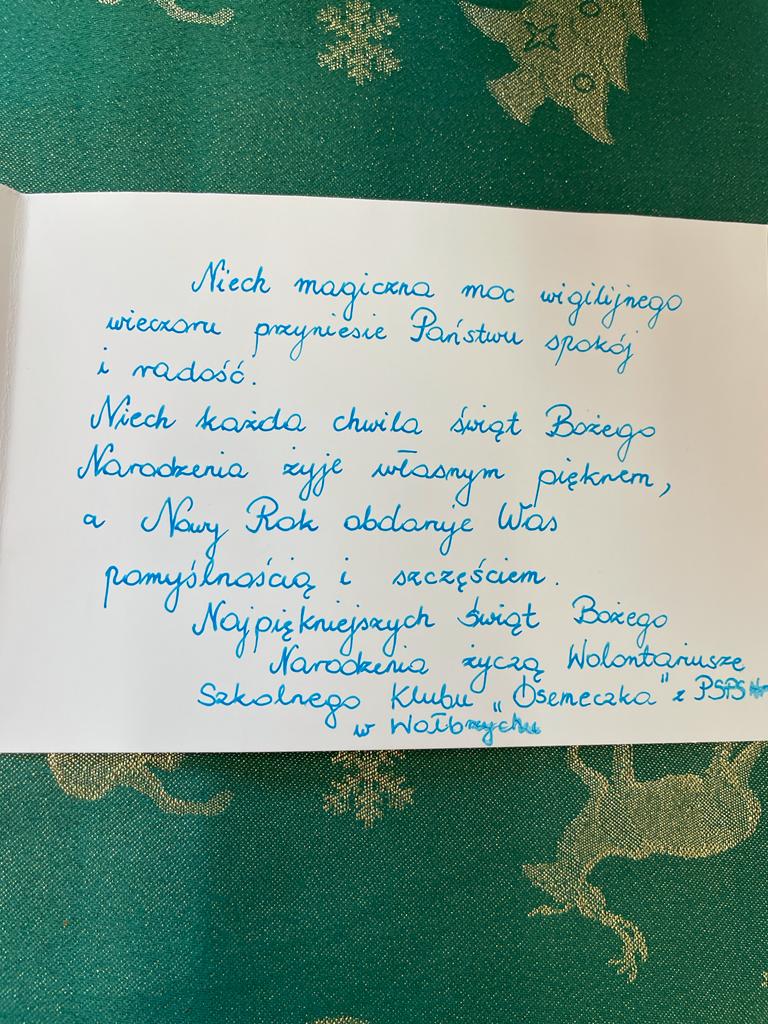 Niech magiczna moc wigilijnego
wieczoru przyniesie Państwu spokój
i radość.
Niech każda chwila świąt Bożego
Narodzenia żyje własnym pięknem,
a Nowy Rok obdaruje Was
pomyślnością i szczęściem.
Najpiękniejszych świąt Bożego
Narodzenia życzą Wolontariusze
Szkolnego Klubu „Ósemeczka" z PSPS
w Wałbrzychu